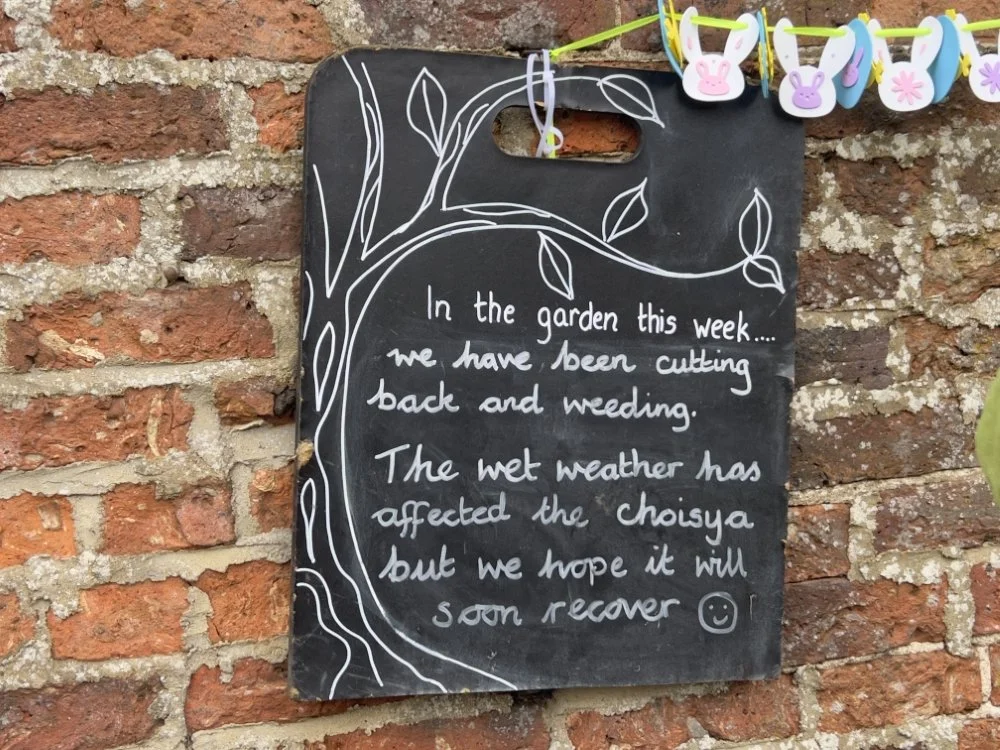 In the garden this week....
we have been cutting
back and weeding.
The wet weather has
affected the choisya
but we hope it will
soon recover ☺